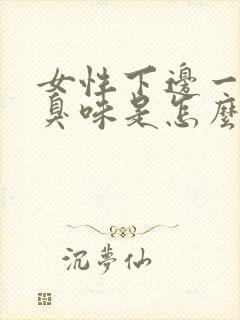 女性下邊一
臭味是怎麼
沉夢仙